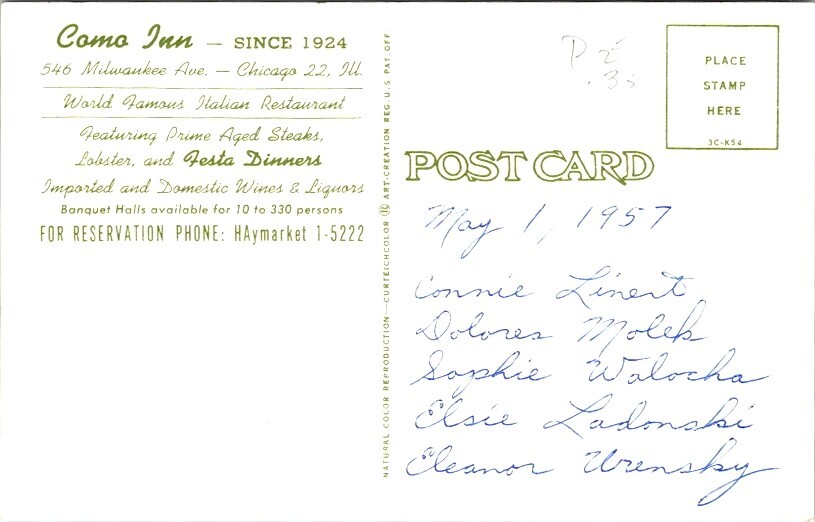 Como Inn — SINCE 1924
546 Milwaukee Ave. — Chicago 22, Ill.
World Famous Italian Restaurant
Featuring Prime Aged Steaks,
Lobster, and Festa Dinners
Imported and Domestic Wines & Liquors
Banquet Halls available for 10 to 330 persons
FOR RESERVATION PHONE: HAymarket 1-5222
NATURAL COLOR REPRODUCTION—CURTEICHCOLOR ART-CREATION REG. U.S. PAT. OFF.
PLACE
STAMP
HERE
3C-K54
POST CARD
May 1, 1957
Connie Linert
Dolores Molek
Sophie Walocha
Elsie Ladonski
Eleanor Wrensky